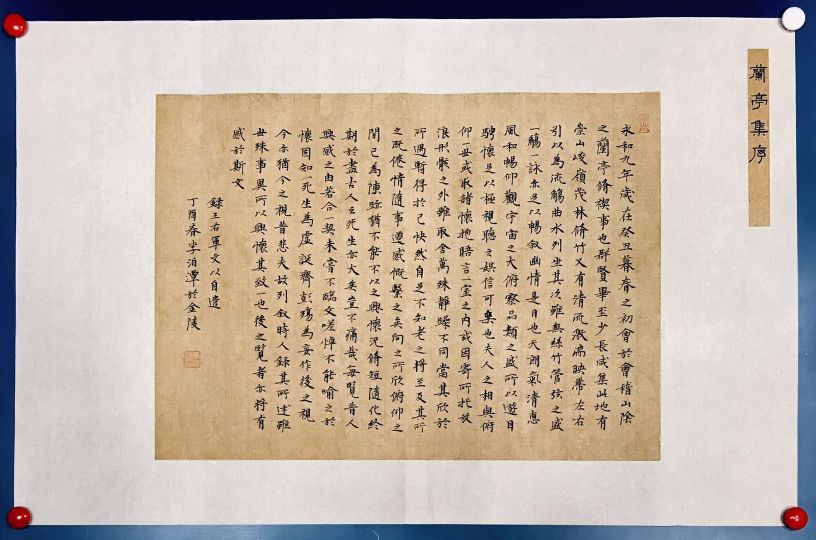 蘭亭集序
永和九年歲在癸丑暮春之初會於會稽山陰
之蘭亭脩禊事也群賢畢至少長咸集此地有
崇山峻嶺茂林脩竹又有清流激湍映帶左右
引以為流觴曲水列坐其次雖無絲竹管弦之盛
一觴一詠亦足以暢叙幽情是日也天朗氣清惠
風和暢仰觀宇宙之大俯察品類之盛所以遊目
騁懷足以極視聽之娛信可樂也夫人之相與俯
仰一世或取諸懷抱晤言一室之内或因寄所托放
浪形骸之外雖取舍萬殊靜躁不同當其欣於
所遇暫得於己快然自足不知老之將至及其所
之既倦情隨事遷感慨繫之矣向之所欣俯仰之
間已為陳跡猶不能不以之興懷況脩短隨化終
期於盡古人云死生亦大矣豈不痛哉每覽昔人
興感之由若合一契未嘗不臨文嗟悼不能喻之於
懷固知一死生為虛誕齊彭殤為妄作後之視
今亦猶今之視昔悲夫故列叙時人錄其所述雖
世殊事異所以興懷其致一也後之覽者亦將有
感於斯文
錄王右軍文以自遣
丁酉春李泊潭於金陵